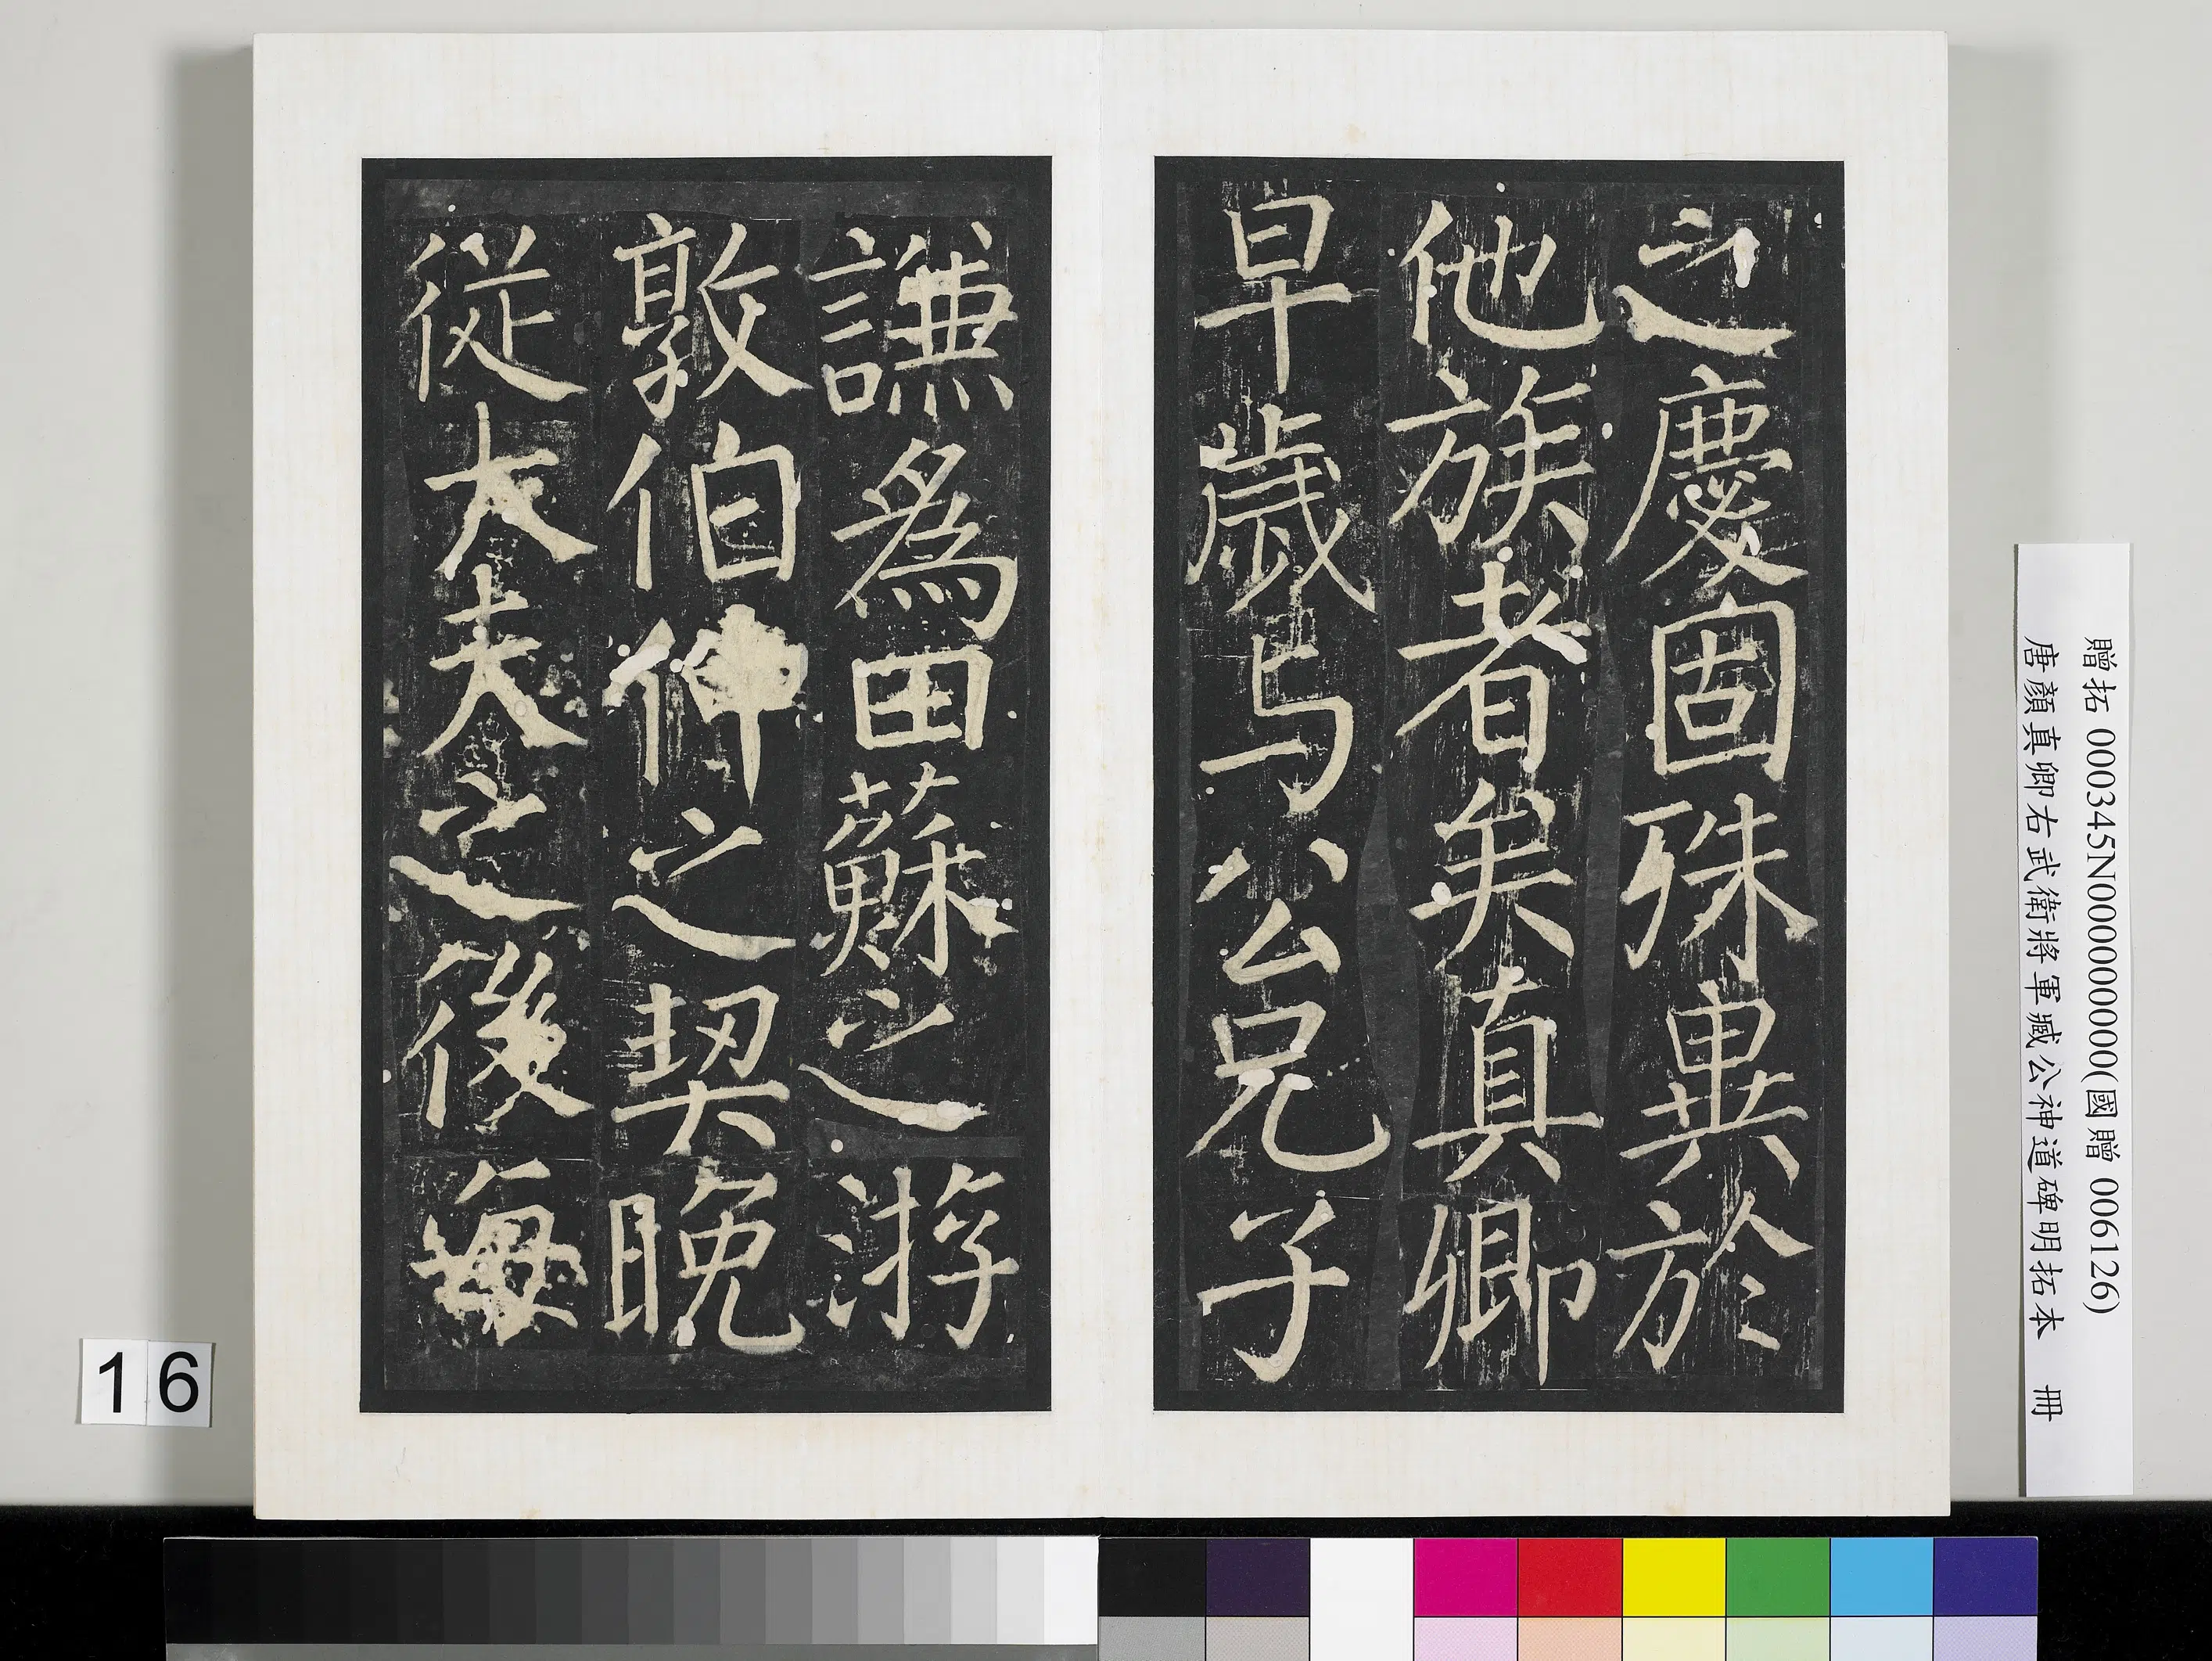 之慶固殊異於
他族者矣真卿
早歲与公兄子
謙為田蘇之游
敦伯仲之契晚
從大夫之後每
贈拓 000345N000000000(國贈 006126)
唐顏真卿右武衛將軍臧公神道碑明拓本 冊
16